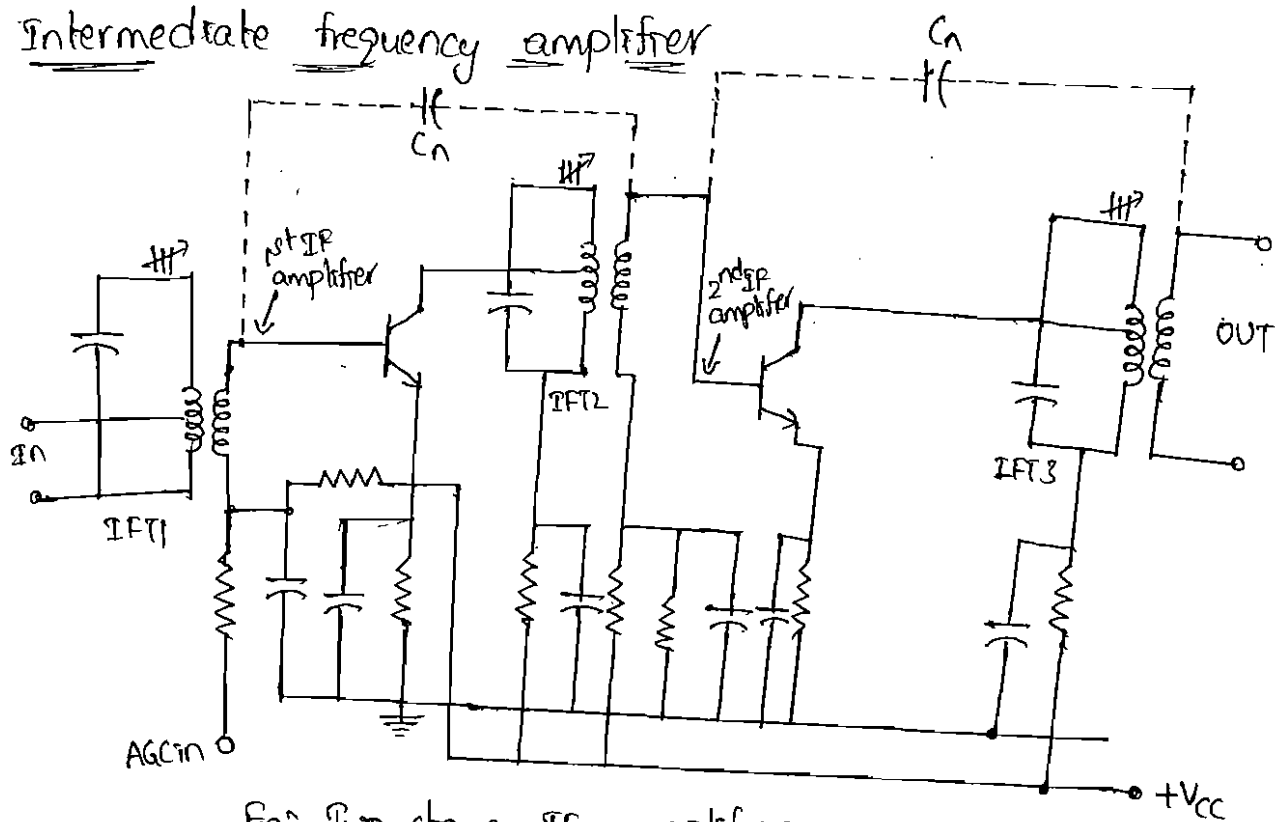 Intermediate frequency amplifier
Cn
Cn
1st IF
amplifier
2nd IF
amplifier
OUT
In
IFT1
IFT2
IFT3
AGCin
+VCC